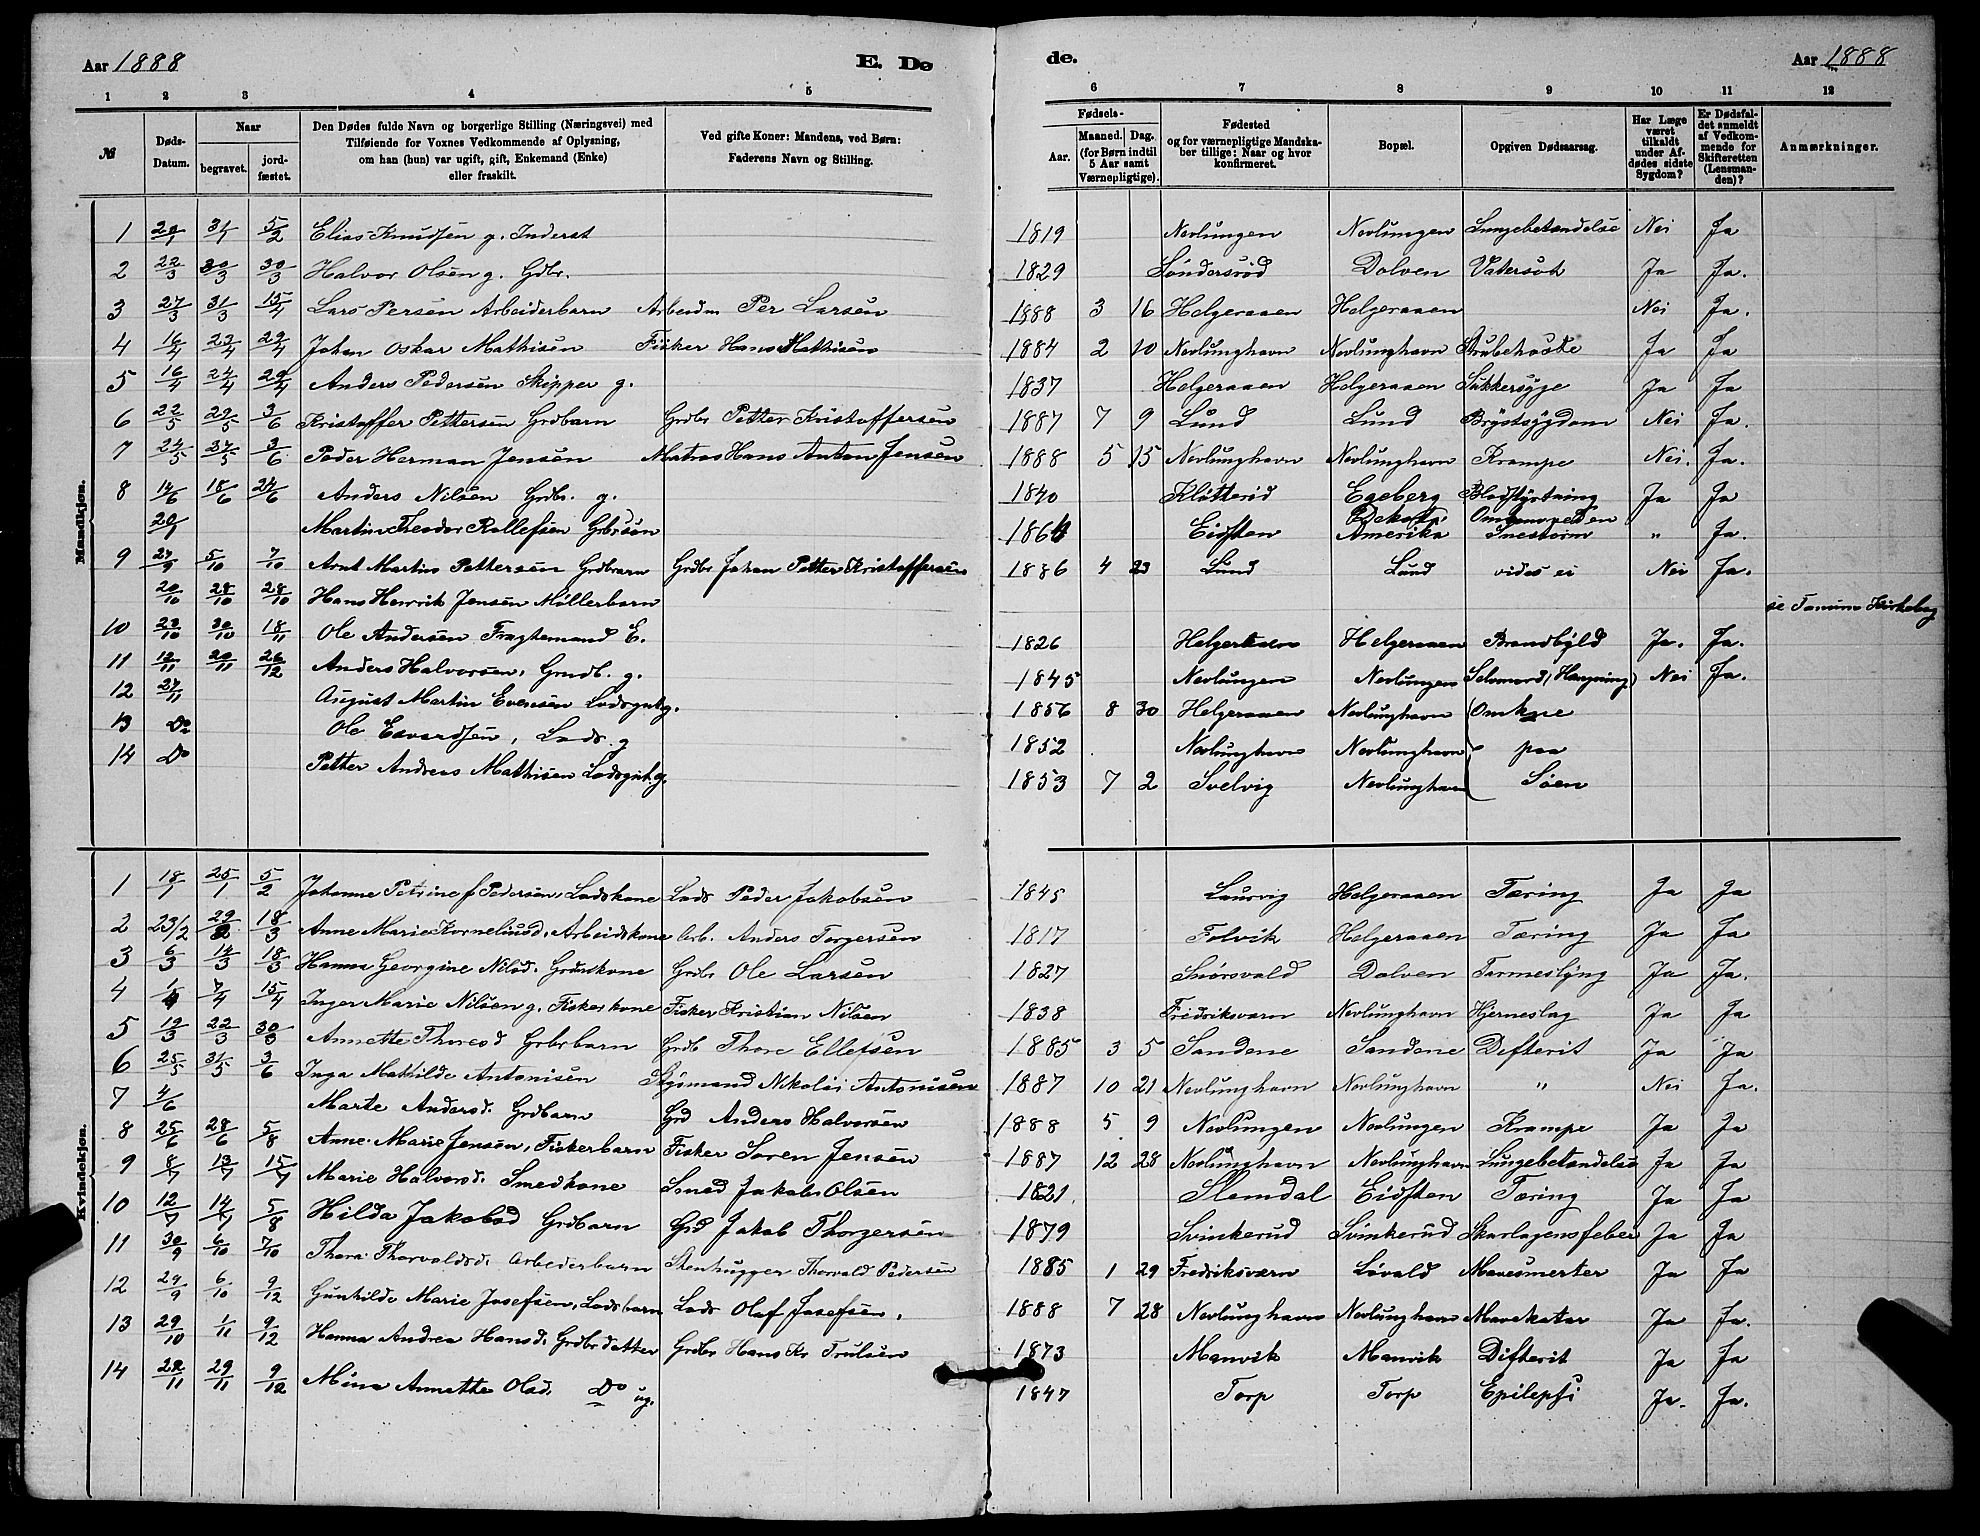 Aar 1888 E. Dø de. Aar 1888
1 2 3 4 5 6 7 8 9 10 11 12
№ Døds-Datum. Naar begravet. jord-fæstet. Den Dødes fulde Navn og borgerlige Stilling (Næringsvei) med Tilføiende for Voxnes Vedkommende af Oplysning, om han (hun) var ugift, gift, Enkemand (Enke) eller fraskilt. Ved gifte Koner: Mandens, ved Børn: Faderens Navn og Stilling. Fødsels- Aar. Maaned. Dag. (for Børn indtil 5 Aar samt Værnepligtige). Fødested og for værnepligtige Mandskaber tillige: Naar og hvor konfirmeret. Bopæl. Opgiven Dødsaarsag. Har Læge været tilkaldt under Afdødes sidste Sygdom? Er Dødsfaldet anmeldt af Vedkommende for Skifteretten (Lensmanden)? Anmærkninger.
Mandkjøn.
1 20/1 31/1 5/2 Elias Knudsen g. Inderst 1819 Nevlungen Nevlungen Lungebetændelse Nei Ja
2 22/3 30/3 30/3 Halvor Olsen g. Gdbr. 1829 Søndersrød Dolven Vatersot Ja Ja.
3 27/3 31/3 15/4 Lars Persen Arbeiderbarn Arbeidm Per Larsen 1888 3 16 Helgeraaen Helgeraaen Nei Ja.
4 16/4 23/4 29/4 Johan Oskar Mathisen Fisker Hans Mathisen 1884 2 10 Nevlunghavn Nevlunghavn Strubehoste Ja Ja
5 16/4 24/4 29/4 Anders Pedersen Skipper g. 1837 Helgeraaen Helgeraaen Sukkersyge Ja Ja
6 22/5 29/5 3/6 Kristoffer Pettersen Grdbarn Grdbr Petter Kristoffersen 1887 7 9 Lund Lund Brystsygdom Nei Ja.
7 24/5 31/5 3/6 Peder Herman Jensen Matros Hans Anton Jensen 1888 5 15 Nevlunghavn Nevlunghavn Krampe Nei. Ja.
8 14/6 18/6 24/6 Anders Nilsen Grdbr. g. 1840 Kløtterød Egeberg Blodstyrtning Ja Ja
20/1 Martin Theodor Rollefsen Grbrsøn 1864 Eidsten Dekota Amerika Omkommet en Snestorm " Ja.
9 27/9 5/10 7/10 Arnt Martin Pettersen Grdbrarn Grdbr Johan Petter Kristoffersen 1886 4 23 Lund Lund vides ei Nei Ja.
20/10 28/10 28/10 Hans Henrik Jensen Møllerbarn se Tanum Kirkebog
10 23/10 30/10 18/11 Ole Andersen Fragtemand E. 1826 Helgeraaen Helgeraaen Brandbyld Ja. Ja.
11 12/11 20/11 26/12 Anders Halvorsen, Grudb. g. 1845 Nevlungen Nevlungen Selvmord (Hængning) Nei Ja.
12 27/11 August Martin Evensen Lodsgut g. 1856 8 30 Helgeraaen Nevlunghavn Omkne
13 Do Ole Edvardsen, Lods. g 1852 Nevlunghavn Nevlunghavn paa
14 Do Petter Andreas Mathisen Lodsgut g. 1853 7 2 Svelvig Nevlunghavn Søen
Kvindekjøn.
1 18/1 25/1 5/2 Johanne Petrine f Pedersen, Lodskone Lods Peder Jakobsen 1845 Laurvig Helgeraaen Tæring Ja Ja
2 23/2 29/2 18/3 Anne Marie Korneliusd. Arbeidskone Arb. Anders Torgersen 1817 Folvik Helgeraaen Tæring Ja Ja
3 6/3 14/3 18/3 Hanna Georgine Nilsd. Grdbrskone Grdbr Ole Larsen 1827 Snorsvald Dolven Tarmeslyng Ja Ja.
4 1/4 7/4 15/4 Inger Marie Nilsen g. Fiskerkone Fisker Kristian Nilsen 1838 Fredriksværn Nevlunghavn Hjerneslag Ja Ja
5 19/3 22/3 30/3 Annette Thoresd Grbrbarn Grdb Thore Ellefsen 1885 3 5 Sandene Sandene Defterit Ja Ja
6 25/5 31/5 3/6 Inga Mathilde Antonisen Styrmand Nikolai Antonisen 1887 10 21 Nevlunghavn Nevlunghavn " Nei Ja.
7 4/6 Marte Andersd. Grdbarn Grd Anders Halvorsen 1888 5 9 Nevlungen Nevlungen Krampe Ja Ja
8 25/6 28/6 5/8 Anne Marie Jensen, Fiskerbarn Fisker Søren Jensen 1887 12 28 Nevlunghavn Nevlunghavn Lungebetændelse Ja Ja
9 8/7 13/7 15/7 Marie Halvorsd. Smedkone Smed Jakob Olsen 1821 Slemdal Eidsten Tæring Ja Ja
10 12/7 14/7 5/8 Hilda Jakobsd Grdbarn Grd Jakob Thorgersen 1879 Svinkerud Svinkerud Skarlagensfeber Ja Ja
11 30/9 6/10 7/10 Thora Thorvaldsd. Arbeiderbarn Stenhugger Thorvald Pedersen 1885 1 29 Fredriksværn Løvald Mavesmerter Ja Ja
12 29/9 6/10 9/12 Gunhilde Marie Josefsen, Lodsbarn Lods Olaf Josefsen, 1888 7 28 Nevlunghavn Nevlunghavn Mavekatar Ja Ja.
13 29/10 1/11 9/12 Hanna Andrea Hansd. Grdbrdatter Grdbr Hans Kr Trulsen 1873 Manvik Manvik Difterit Ja Ja
14 22/11 29/11 9/12 Mina Annette Olsd. Do ug. 1847 Torp Torp Epilepsi Ja. Ja.